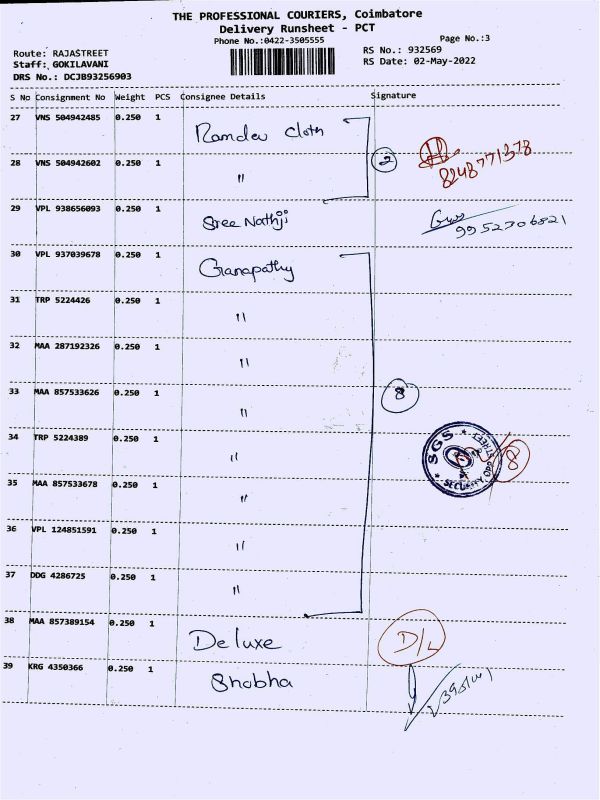 THE PROFESSIONAL COURIERS, Coimbatore
Delivery Runsheet - PCT
Phone No.:0422-3505555
Page No.:3
Route: RAJASTREET
RS No.: 932569
Staff: GOKILAVANI
RS Date: 02-May-2022
DRS No.: DCJB93256903
S No Consignment No Weight PCS Consignee Details Signature
27 VNS 504942485 0.250 1 Ramdev Cloth
28 VNS 504942602 0.250 1 " 2 8248771378
29 VPL 938656093 0.250 1 Sree Nathji 9952706821
30 VPL 937039678 0.250 1 Ganapathy
31 TRP 5224426 0.250 1 "
32 MAA 287192326 0.250 1 "
33 MAA 857533626 0.250 1 " 8
34 TRP 5224389 0.250 1 " SGS SECURITY, OPP STREET 8
35 MAA 857533678 0.250 1 "
36 VPL 124851591 0.250 1 "
37 DDG 4286725 0.250 1 "
38 MAA 857389154 0.250 1 Deluxe D/L
39 KRG 4350366 0.250 1 Shobha